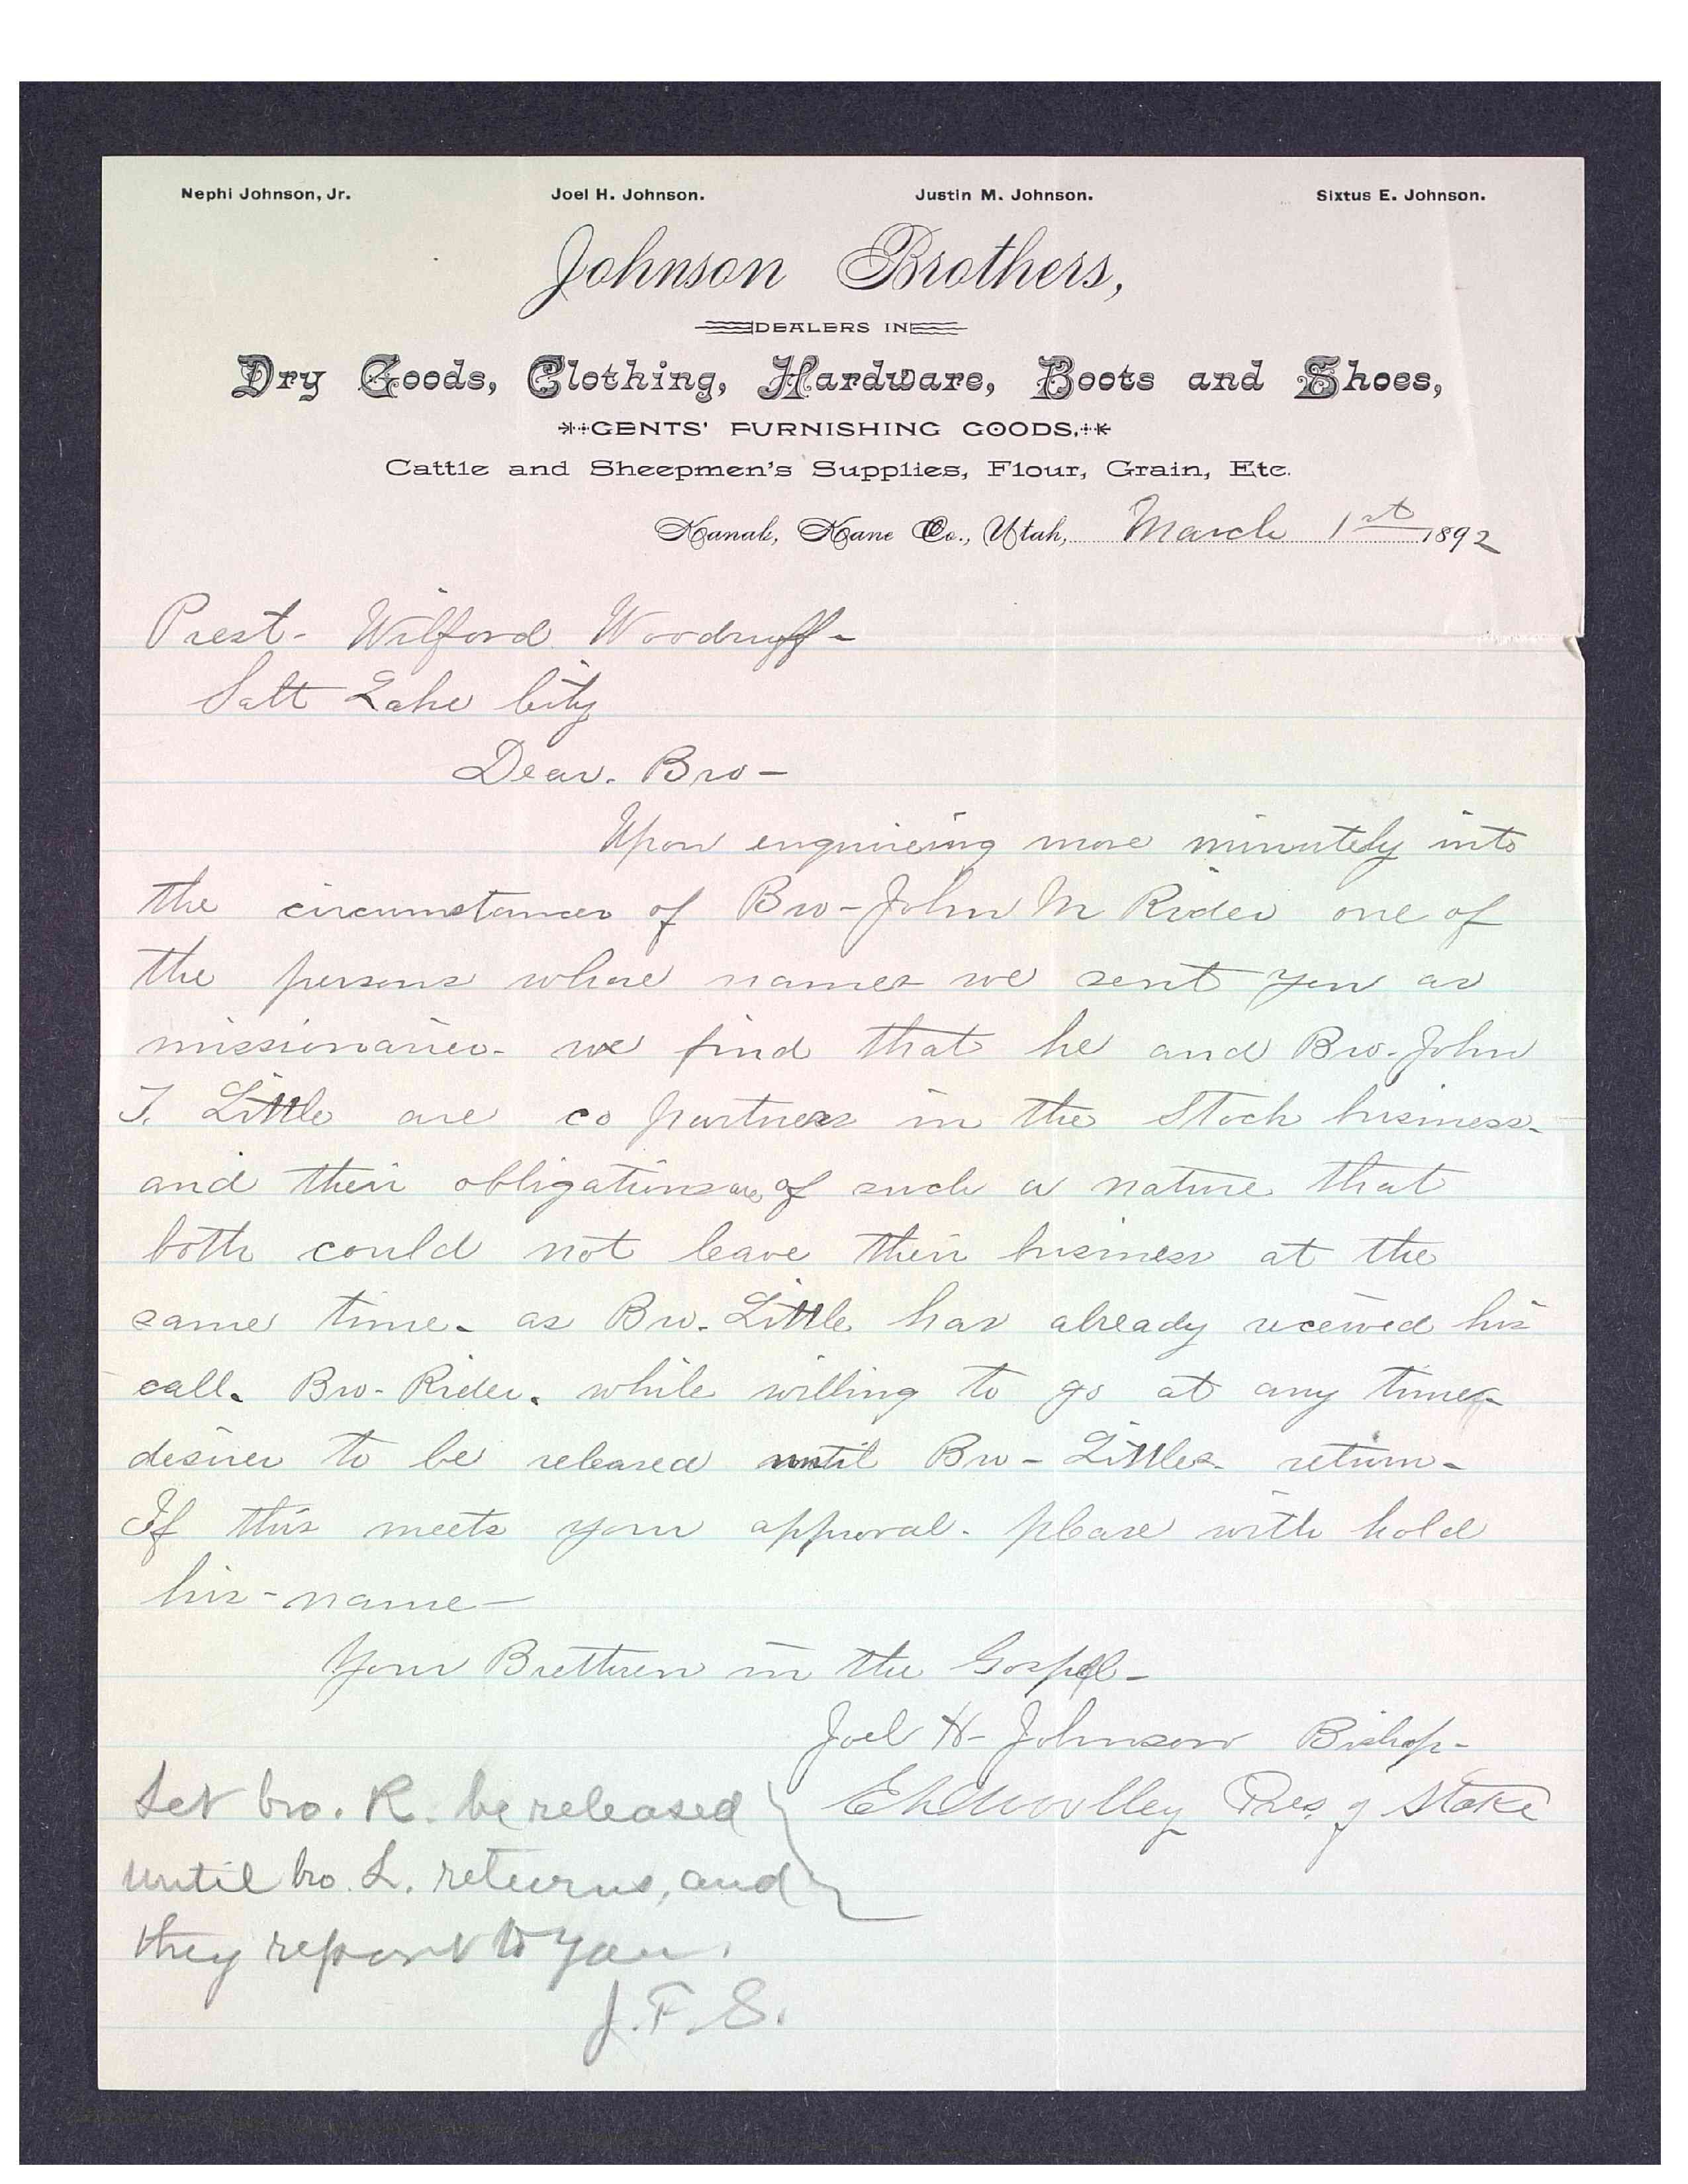 Nephi Johnson, Jr. Joel H. Johnson. Justin M. Johnson. Sixtus E. Johnson.
Johnson Brothers,
DEALERS IN
Dry Goods, Clothing, Hardware, Boots and Shoes,
GENTS' FURNISHING GOODS.
Cattle and Sheepmen's Supplies, Flour, Grain, Etc.
Kanab, Kane Co., Utah, March 1st 1892
Prest- Wilford Woodruff-
Salt Lake City
Dear. Bro-
Upon enquireing more minutely into
the circumstances of Bro-John M Rider one of
the persons whose names we sent you as
missionaries- we find that he and Bro-John
T. Little are co partners in the Stock business-
and their obligations are of such a nature that
both could not leave their business at the
same time- as Bro. Little has already received his
call. Bro-Rider. while willing to go at any time-
desires to be released until Bro-Littles- return-
If this meets your approval- please with hold
his-name-
Your Brethren in the Gospel-
Joel H-Johnson Bishop-
E D Woolley Pres. of Stake
Let bro. R. be released
until bro. L. returns, and
they report to you.
J.F.S.